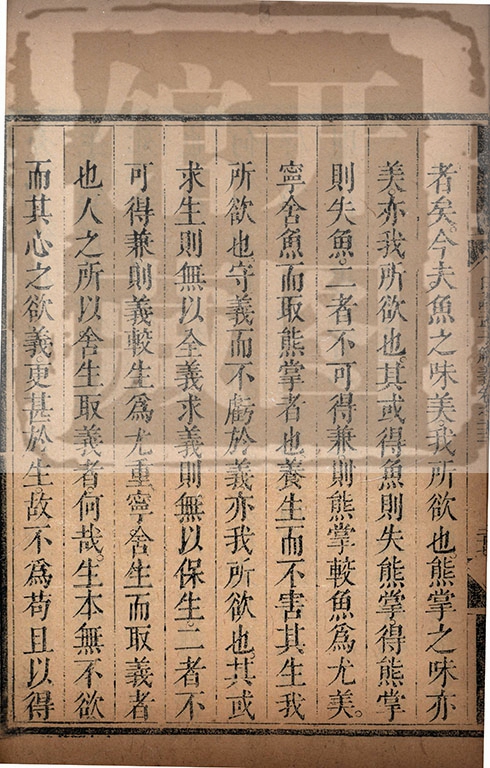 者矣。今夫魚之味美。我所欲也熊掌之味亦
美。亦我所欲也。其或得魚則失熊掌。得熊掌
則失魚。二者不可得兼則熊掌較魚爲尤美。
寧舍魚而取熊掌者也養生而不害其生我
所欲也守義而不虧於義亦我所欲也其或
求生則無以全義求義則無以保生二者不
可得兼則義較生爲尤重寧舍生而取義者
也人之所以舍生取義者何哉。生本無不欲
而其心之欲義更甚於生故不爲苟且以得